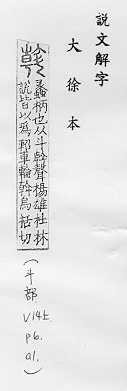 說文解字
大徐本
斡
蠡柄也从斗倝聲楊雄杜林
說皆以爲軺車輪斡烏括切
(斗部
V14上
p6.
a1.)